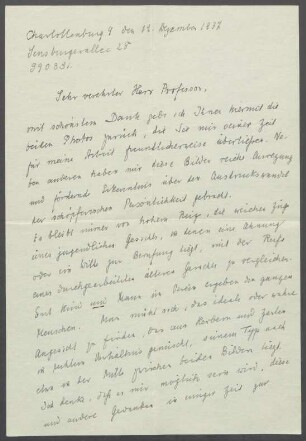 Charlottenburg 9 den 11. Dezember 1937
Sensburgerallee 28
990831.
Sehr verehrter Herr Professor,
mit schönstem Dank gebe ich Ihnen hiermit die
beiden Photos zurück, die Sie mir vorige Zeit
für meine Arbeit freundlicherweise überliessen. Ne-
ben anderen haben mir diese Bilder reiche Anregung
und fördernde Erkenntnis über den Ausdruckswandel
der schöpferischen Persönlichkeit gebracht.
Es bleibt immer von hohem Reize, die weichen Züge
eines jugendlichen Gesichts, in denen eine Ahnung
oder ein Wille zur Berufung liegt, mit der Reife
eines durchgearbeiteten älteren Gesichts zu vergleichen.
Erst Keim und Mann im Bilde ergeben den ganzen
Menschen. Man müht sich, das ideale oder wahre
Angesicht zu finden, das aus Werdern und Sein
im rechten Verhältnis gemischt, seinem Typ nach
etwa in der Mitte zwischen beiden Bildern liegt.
Ich denke, dass es mir möglich sein wird, diese
und andere Gedanken in einiger Zeit zur